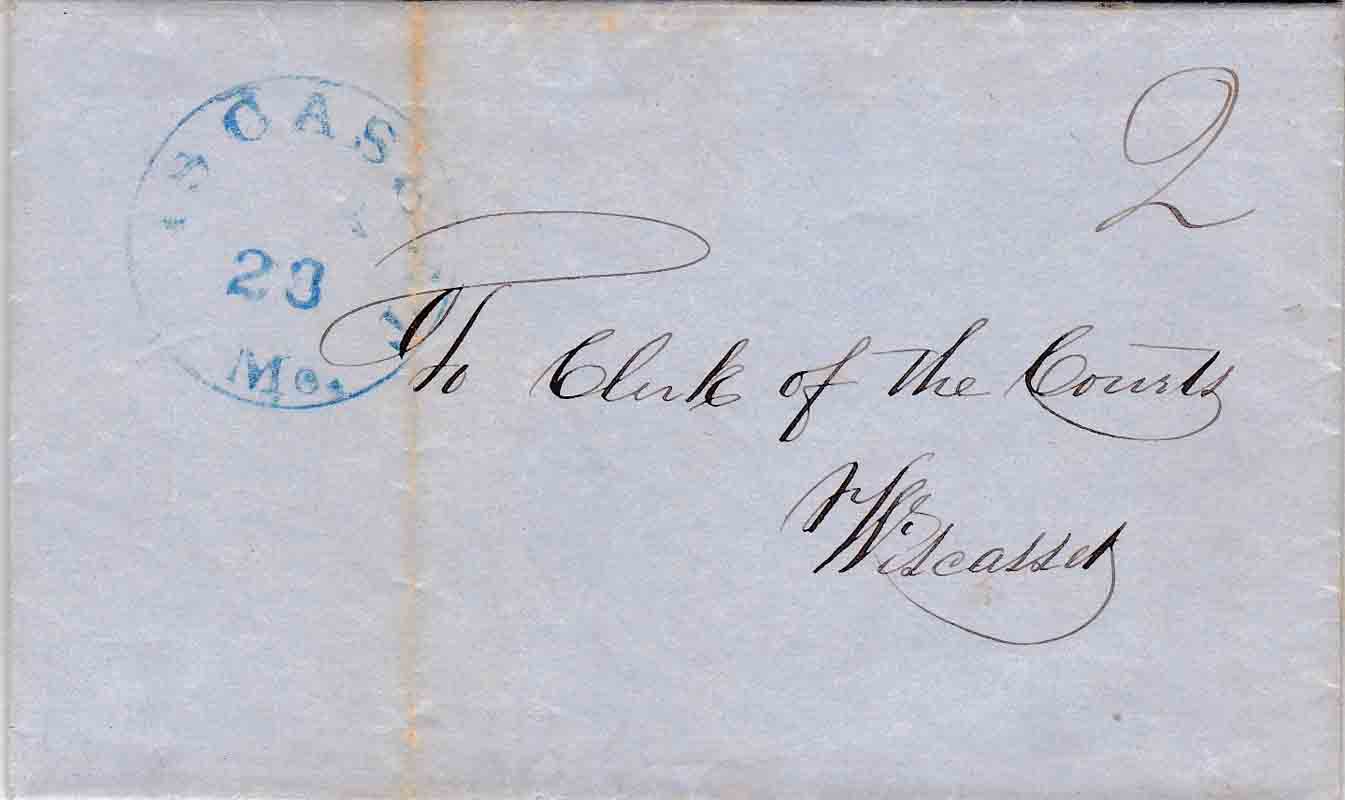 ISCASS
23
Me.
2
To Clerk of the Courts
Wiscasset